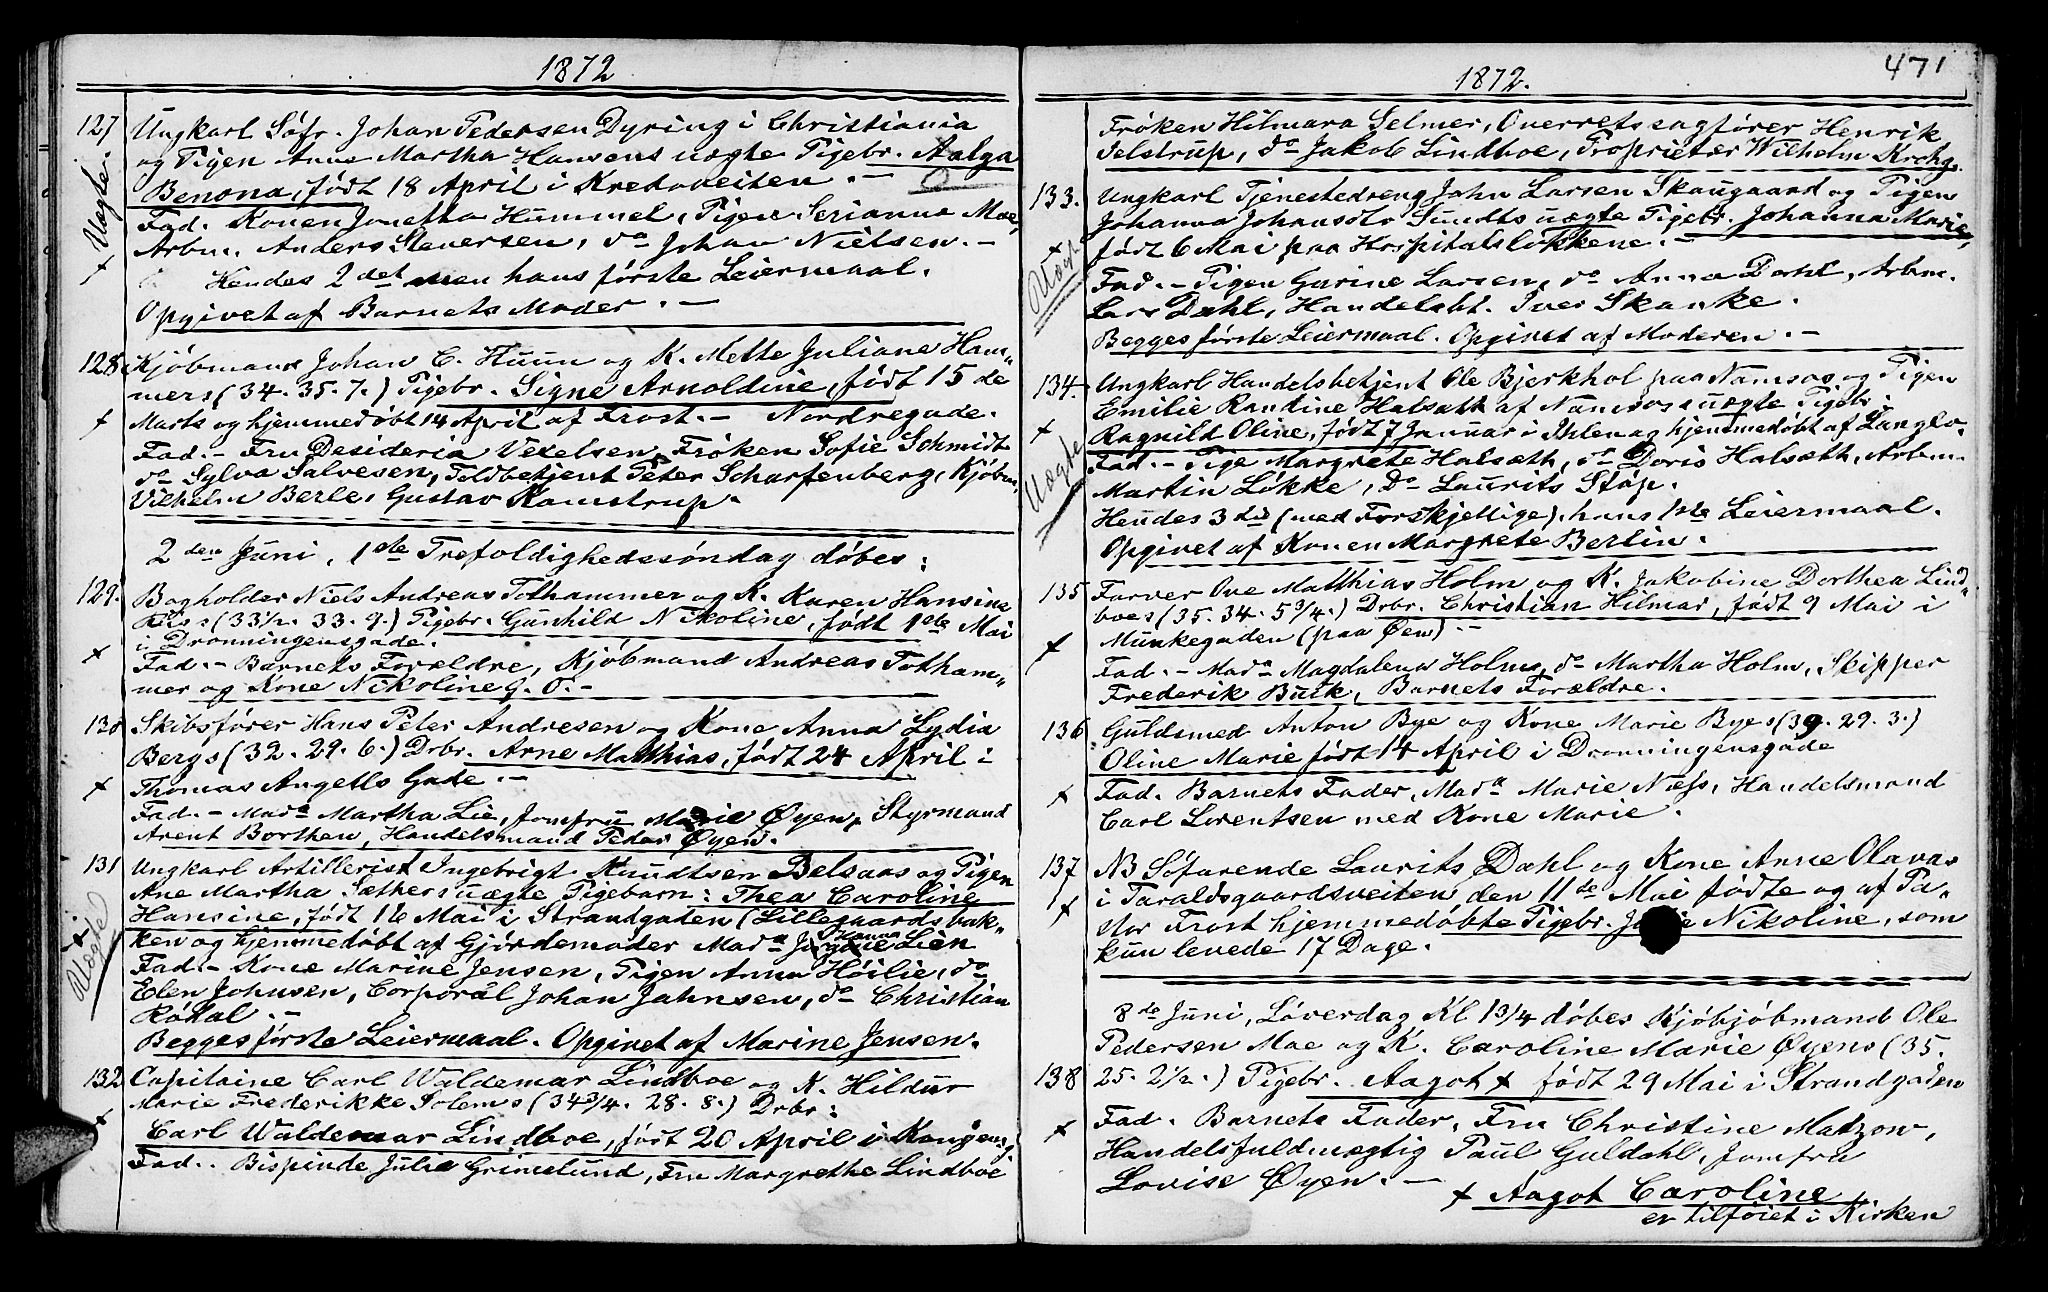 1872
127 Ungkarl Søfr. Johan Pedersen Dyring i Christiania
og Pigen Anna Martha Hansens uægte Pigebr. Aalga
Benona, født 18 April i Kredoveiten. —
Fad. Konen Jonetha Hummel, Pigen Serianna Moe,
Arbm. Anders Steversen, do Johan Nielsen. —
Hendes 2det men hans første Leiermaal.
Opgivet af Barnets Moder. —
+ Uægte.
128. Kjøbmand Johan C. Huun og K. Mette Juliane Ham„
mers (34. 35. 7.) Pigebr. Signe Arnoldine, født 15 de
+ Marts og hjemmedøbt 14 April af Frost. — Nordregade.
Fad. — Fru Desideria Vexelsen, Frøken Sofie Schmidt
do Sylva Salvesen, Toldbetjent Peter Scharfenberg, Kjøbm.
Vilhelm Berle, Gustav Kamstrup.
2den Juni, 1ste Trefoldighedssøndag døbes:
129. Bogholder Niels Andreas Tothammer og K. Karen Hansine
(33½. 33. 9.) Pigebr. Gunhild Nikoline, født 1ste Mai
i Dronningensgade.
+ Fad. — Barnets Forældre, Kjøbmand Andreas Totham„
mer og Kone Nikoline G. O. —
130 Skibsfører Hans Peter Andresen og Kone Anna Lydia
Bergs (32. 29. 6.) Drbr. Arne Matthias, født 24 April i
+ Thomas Angells Gade. —
Fad. — Mada Martha Lie, Jomfru Marie Øyen, Styrmand
Arent Borthen, Handelsmand Peder Øyen.
131 Ungkarl Artillerist Ingebrigt Knudtsen Belsaas og Pigen
Ane Martha Sæthers uægte Pigebarn: Thea Caroline
Hansine, født 16 Mai i Strandgaden (Lillegaardsbak„
ken og hjemmedøbt af Gjordemoder Mada Hanna Lien
Fad. — Kone Marine Jensen, Pigen Anna Høilie, do
Elen Johnsen, Corporal Johan Jahnsen, do Christian
Rokal. —
Begges første Leiermaal. Opgivet af Marine Jensen.
+ Uægte
132 Capitaine Carl Waldemar Lindboe og K. Hildur
Marie Frederikke Solems (34¾. 28. 8.) Drbr:
+ Carl Waldemar Lindboe, født 20 April i Kongensg.
Fad. . Bispinde Julie Grimelund, Fru Margrethe Lindboe
471
1872.
Frøken Hilmara Selmer, Overretssagfører Henrik
Jelstrup, do Jakob Lindboe, Proprietær Wilhelm Krohg.
133. Ungkarl Tjenestedreng John Larsen Skaugaard og Pigen
Johanna Johansdtr Sundts uægte Pigebr. Johanna Marie,
født 6 Mai paa Hospitalsløkkene. —
Fad. — Pigen Gurine Larsen, do Anna Dahl, Arbm.
Lars Dahl, Handelsbt. Iver Skanke.
Begges første Leiermaal. Opgivet af Moderen. —
+ Uægte
134. Ungkarl Handelsbetjent Ole Bjerkhol paa Namsos og Pigen
Emilie Randine Halsæth af Namsos uægte Pigebr:
+ Ragnild Oline, født 7 Januar i Ihlen og hjemmedøbt af Langlo.
Fad. — Pige Margrete Halsæth, do Doris Halsæth, Arbm.
Martin Løkke, do Laurits Støp.
Hendes 3die (med Forskjellige). hans 1ste Leiermaal.
Opgivet af Konen Margrete Berlin.
Uægte
135 Farver Ove Matthias Holm og K. Jakobine Dorthea Lind„
boes (35. 34. 5¾.) Drbr. Christian Hilmar, født 9 Mai i
+ Munkegaden (paa Øen). —
Fad. — Mada Magdalena Holm, do Martha Holm, Skipper
Frederik Buck, Barnets Forældre.
136 Guldsmed Anton Bye og Kone Marie Byes (39. 29. 3.)
Oline Marie født 14 April i Dronningensgade
+ Fad. Barnets Fader, Mada Marie Næss, Handelsmand
Carl Lorentsen med Kone Marie.
137 NB Søfarende Laurits Dahl og Kone Anne Olavas
i Taraldsgaardsveiten, den 11te Mai fødte og af Pa„
+ stor Frost hjemmedøbte Pigebr. Nikoline, som
kun levede 17 Dage.
8de Juni, Løverdag Kl 1¾ døbes Kjøbmand Ole
Pedersen Moe og K. Caroline Marie Øyens (35.
138 25. 2½.) Pigebr. Aagot + født 29 Mai i Strandgaden
+ Fad. Barnets Fader, Fru Christine Matzow,
Handelsfuldmægtig Paul Guldahl, Jomfru
Lovise Øyen. —
+ Aagot Caroline
er tilføiet i Kirken